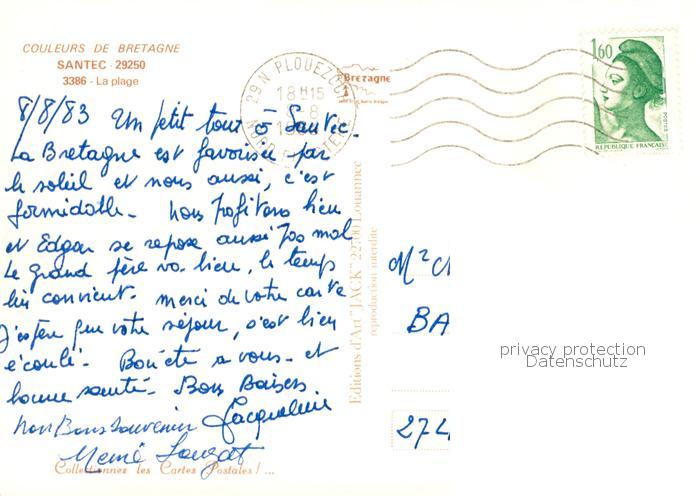 COULEURS DE BRETAGNE
SANTEC - 29250
3386 - La plage
29 N PLOUEZOC
18 H 15
8
Bretagne
1,60
POSTES
REPUBLIQUE FRANCAISE
8/8/83 Un petit tour à Santec.
La Bretagne est favorisée par
le soleil et nous aussi, c'est
formidable. Nous profitons bien
et Edgar se repose aussi pas mal
Le grand père va bien, le temps
lui convient. merci de votre carte
J'espère que votre séjour, s'est bien
écoulé. Bon été a vous. et
bonne santé. Bons Baisers
Jacqueline
Mon Bons Souvenir
Memé
Editions d'Art "JACK" 22700 Louannec
reproduction interdite
BA
274
privacy protection
Datenschutz
Collectionnez les Cartes Postales ! ...